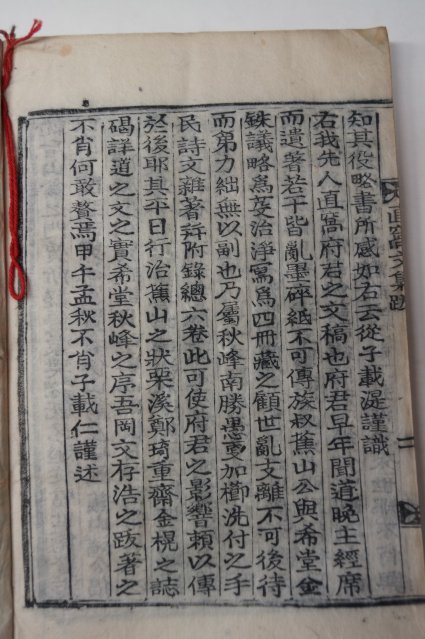 知其役略書所感如右云從子載湜謹識
右我先人直窩府君之文稿也府君早年聞道晩主經席
而遺著若干皆亂墨碎紙不可傳族叔蕉山公與希堂金
銖議略爲芟治淨寫爲四冊藏之顧世亂支離不可後待
而弟力絀無以副也乃屬秋峰南勝愚更加櫛洗付之手
民詩文雜著幷附錄總六卷此可使府君之影響賴以傳
於後耶其平日行治蕉山之狀栗溪鄭琦重齋金榥之誌
碣詳道之文之實希堂秋峰之序吾岡文存浩之跋著之
不肖何敢贅焉甲午孟秋不肖子載仁謹述
直窩文集跋